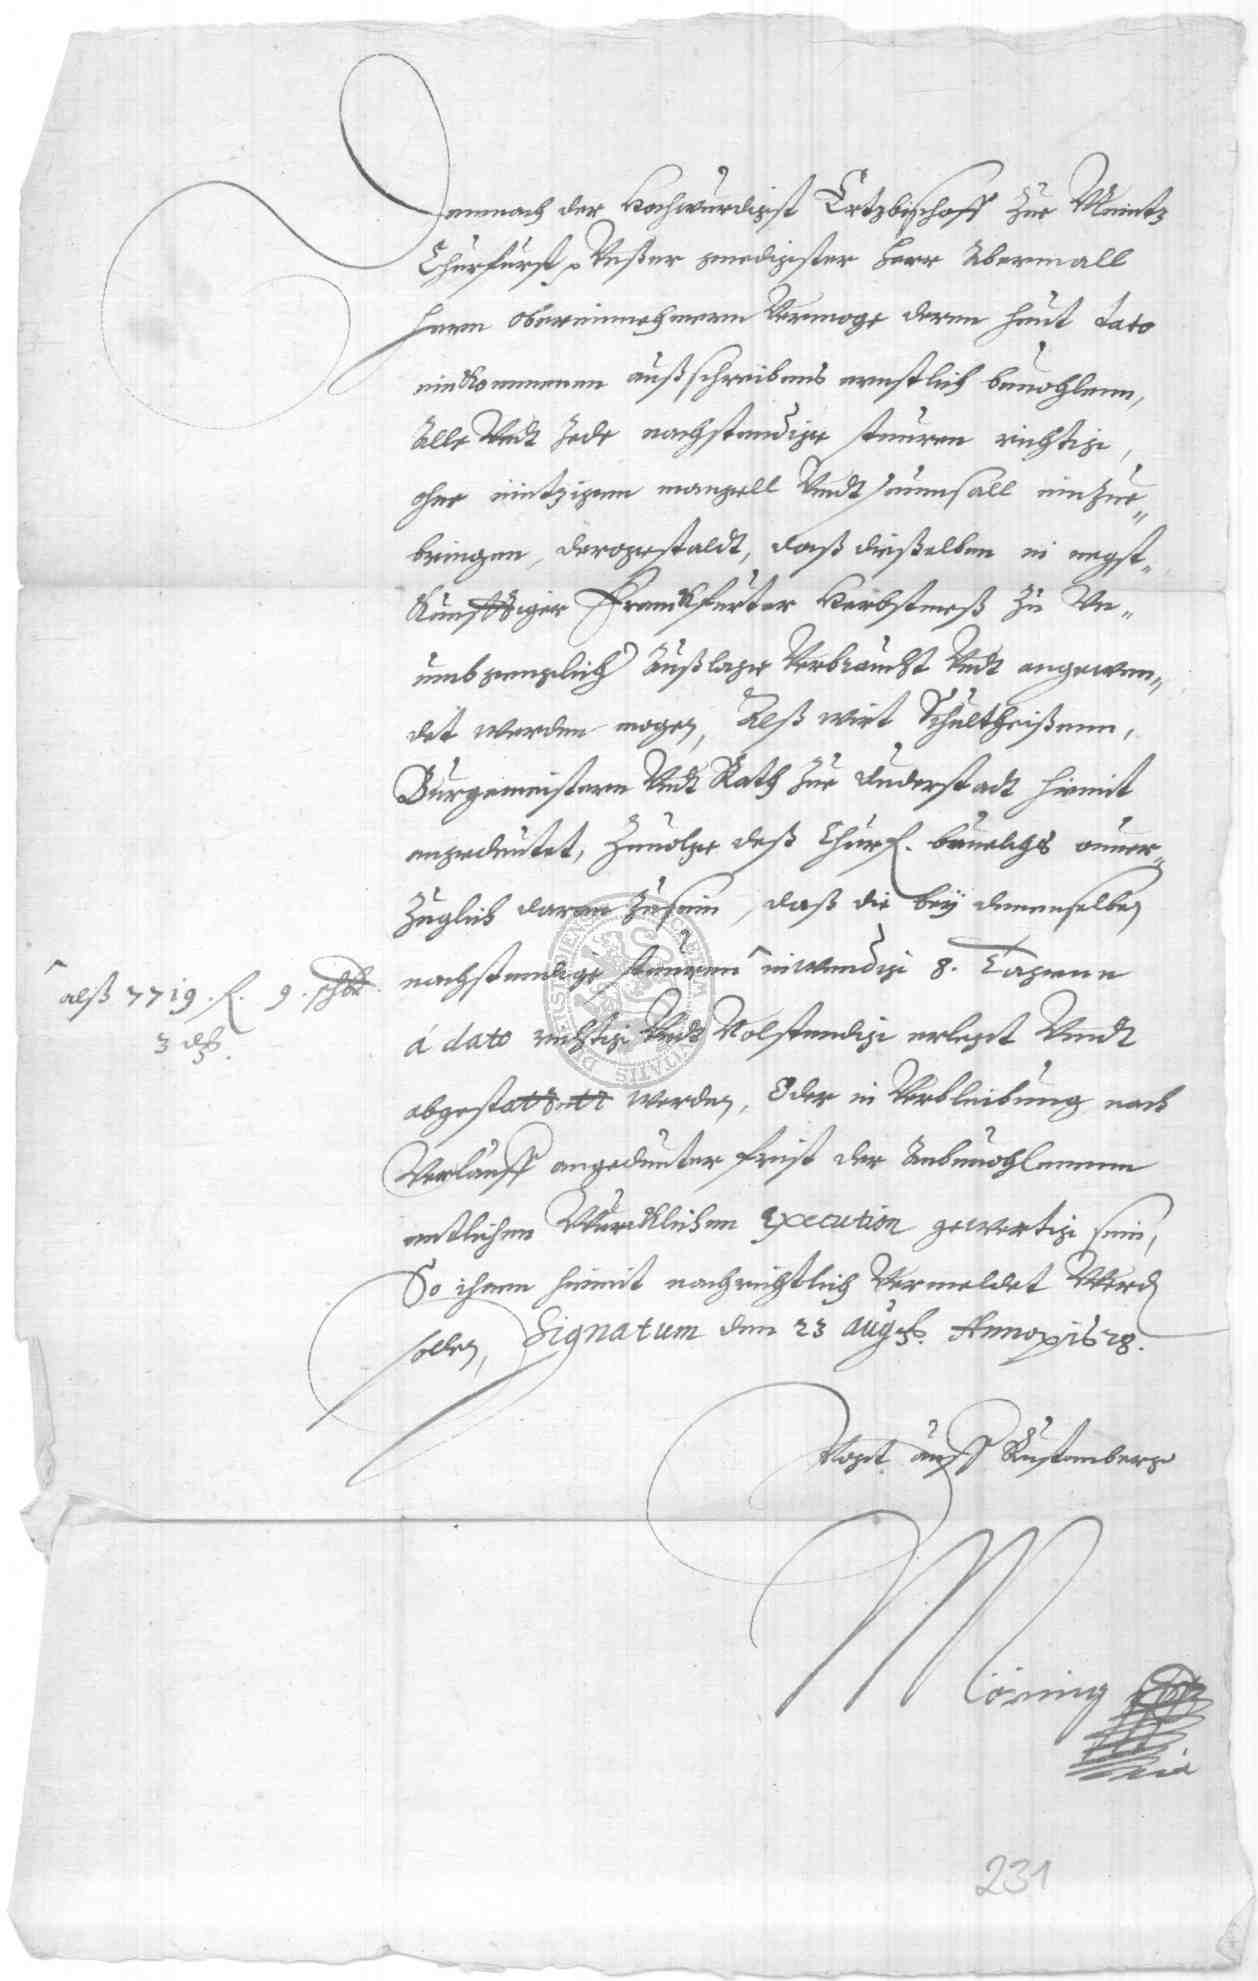 Demnach der Hochwürdigst Ertzbischoff zue Meintz
Churfurst, Unßer gnedigster Herr abermall
Herrn Obereinnehmern Vermoge deren heut dato
einkommenen außschreibens ernstlich beuohlenn,
Alle Undt Jede nachstendige steuren richtig,
ohne eintzigenn mangell Undt seumsall einzue„
bringen, dergestaldt, daß dießelben in negst„
Kunfftiger Franckfurter Herbstmeß zu Un„
umbgenglich Außlage Verbraucht Undt angewen„
det werden mogen, Alß wirt Schultheißenn,
Burgemeistern Undt Rath zue Duderstadt hirmit
angedeutet, Zuuolge deß Churf. beuelchs onuer„
zuglich daran zu sein, daß die bey denenselben
nachstendige steuren ^ inwendig 8. Tagenn
^ alß 7719. f. 9. schl.
3 d.
á dato richtig Undt Volstendig erlegt Undt
abgestattett werden, Oder in Verbleibung nach
Verlauff angedeuter frist der Anbeuohlenenn
entlichen Wurcklichen Execution gewertig sein,
So ihnen hiemit nachrichtlich Vermeldet Werden
sollen, Signatum den 23 Aug. Anno 1628.
Vogt auff Rustenberg
Möring
231